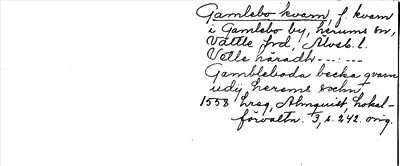 Gamlebo kvarn, f. kvarn
i Gamlebo by, Lerums sn,
Vättle hrd, Älvsb. l.
Vetle häradh --- : ---
Gambleboda becka qvarn
udij Lerems sochn,
1558 hreg, Almquist, Lokal-
förvaltn. 3, s. 242. orig.